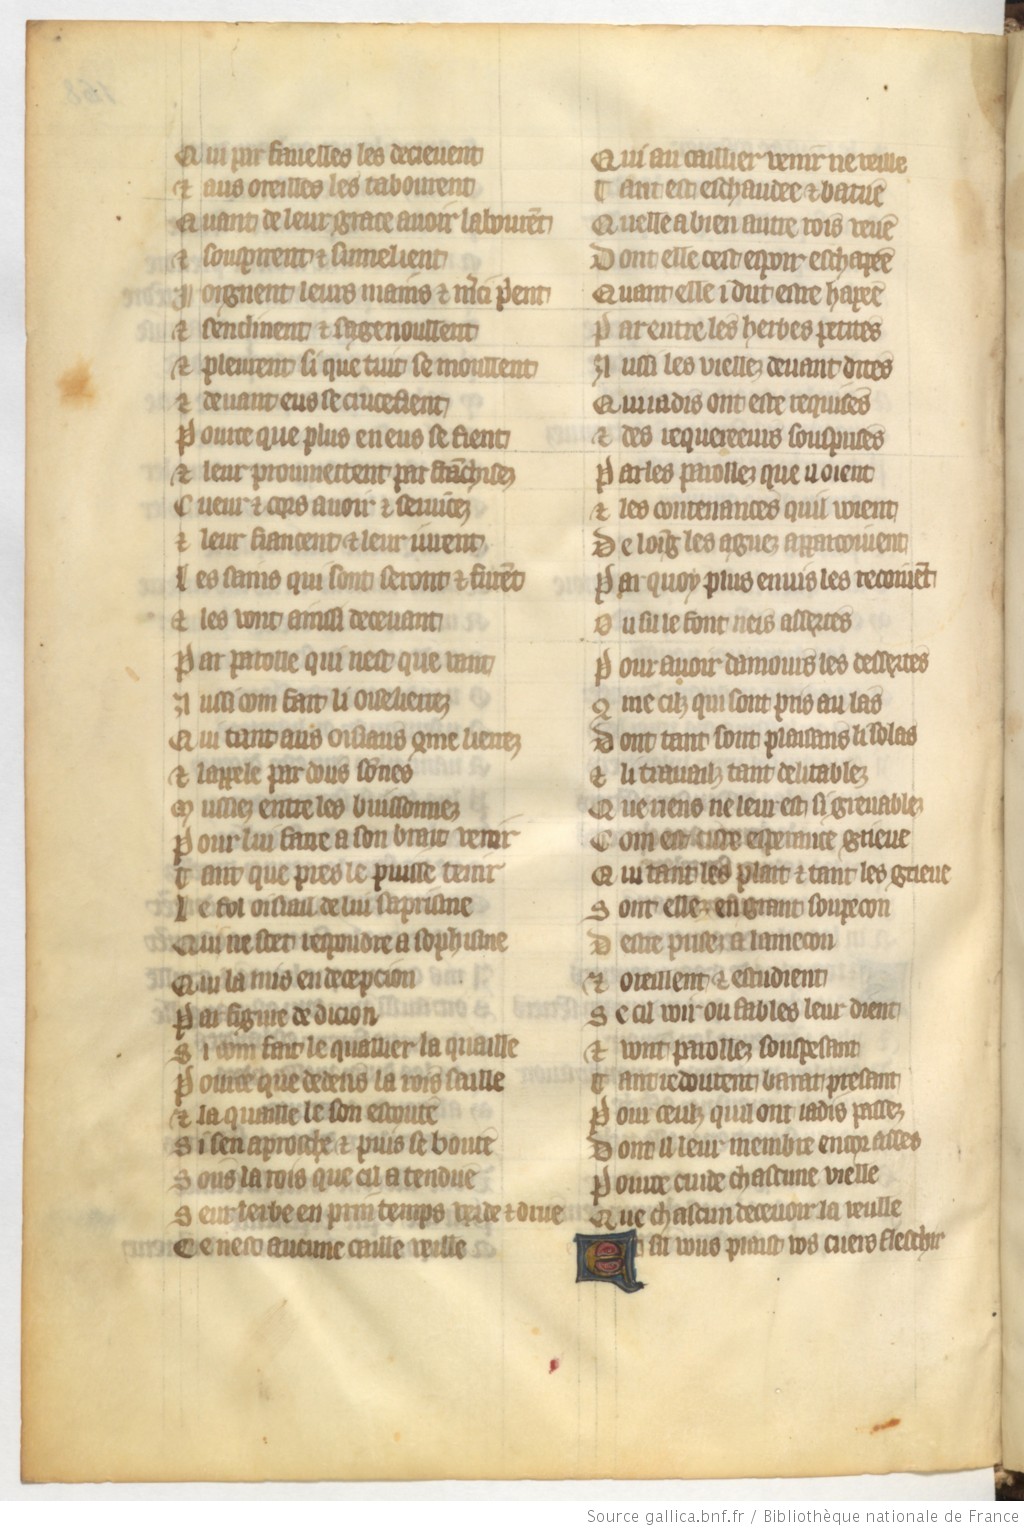 Qui par fauelles les decieuent
⁊ aus oreilles les tabourent
Quant de leur grace auoir labourẽt
⁊ souspirent ⁊ sumelient
Joignent leurs mains ⁊ m̃ci p̃ent
⁊ senclinent ⁊ sagenoullent
⁊ pleurent si que tuit se moullent
⁊ deuant eus se crucefient
Pource que plus en eus se fient
⁊ leur proumettent par frãchisez
Cueur ⁊ cors auoir ⁊ seruicez
⁊ leur fiancent ⁊ leur iurent
Les sains qui sont seront ⁊ furẽt
⁊ les vont ainssi deceuant
Par parolle qui nest que vant
Aussi com fait li oiselierrez
Qui tant aus oisiaus q̃me lierrez
⁊ lappele par dous sõnes
Mussiez entre les buissonnez
Pour lui faire a son brait venir
Tant que pres le puisse tenir
Le fol oisiau de lui saprisme
Qui ne scet respondre a sophisme
Qui la mis en decepcion
Par figure de dicion
Si com fait le quallier la quaille
Pource que dedens la rois saille
⁊ la quaille le son escoute
Si sen aprosche ⁊ puis se boute
Sous la rois que cil a tendue
Seur lerbe en printemps verde ⁊ drue
Ce nest aucune caille veille
Qui au caillier venir ne veille
Tant est eschaudee ⁊ batue
Quelle a bien autre rois veue
Dont elle cest espoir eschapee
Quant elle i dut estre hapee
Par entre les herbes petites
Aussi les viellez deuant dites
Qui iadis ont este requises
⁊ des requereeurs souspises
Par les parollez que il oient
⁊ les contenances quil voient
De loing les aguez apparcoiuent
Par quoy plus enuis les recoiuẽt
Ou sil le font neis assertes
Pour auoir damours les dessertes
9me cilz qui sont pris au las
Dont tant sont plaisans li solas
⁊ li trauailz tant delitablez
Que riens ne leur est si greuablez
Com est ceste esperance grieue
Qui tant les plait ⁊ tant les grieue
Sont elle en grant soupecon
Destre prisez a lamecon
⁊ oreillent ⁊ estudient
Se cil voir ou fables leur dient
⁊ vont parollez souspesant
Tant redoutent barat presant
Pour ceulz quil ont iadis passez
Dont il leur membre encor asses
Pource cuide chascune vielle
Que chascun deceuoir la veulle
Et sil vous plaist vos cuers fleschir